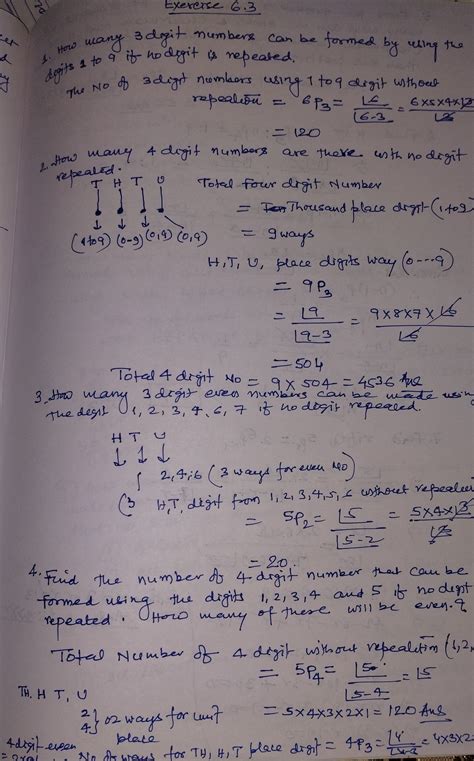 Exercise 6.3
1. How many 3 digit numbers can be formed by using the
digits 1 to 9 if no digit is repeated.
The No of 3 digit numbers using 1 to 9 digit without
repeation = 6P3 = |6 / |6-3 = 6x5x4x|3 / |3
= 120
2. How many 4 digit numbers are there with no digit
repeated.
T H T U
Total four digit Number
= Thousand place digit (1 to 9)
(1 to 9) (0-9) (0,9) (0,9)
= 9 ways
H, T, U, place digits way (0---9)
= 9P3
= |9 / |9-3 = 9x8x7x|6 / |6
= 504
Total 4 digit No = 9 x 504 = 4536 Ans
3. How many 3 digit even numbers can be made using
the degit 1, 2, 3, 4, 6, 7 if no digit repeated.
H T U
2,4,6 (3 ways for even No)
(3 H T, digit from 1, 2, 3, 4, 5, 6 without repeation
= 5P2 = |5 / |5-2 = 5x4x|3 / |3
= 20.
4. Find the number of 4 digit number that can be
formed using the digits 1, 2, 3, 4 and 5 if no digit
repeated. How many of these will be even?
Total Number of 4 digit without repeation (1,2,
= 5P4 = |5 / |5-4 = |5
TH, H T, U
= 5x4x3x2x1 = 120 Ans
2
4} 02 ways for unit
place
4 digit even
No of ways for TH, H, T place digit = 4P3 = |4 = 4x3x2